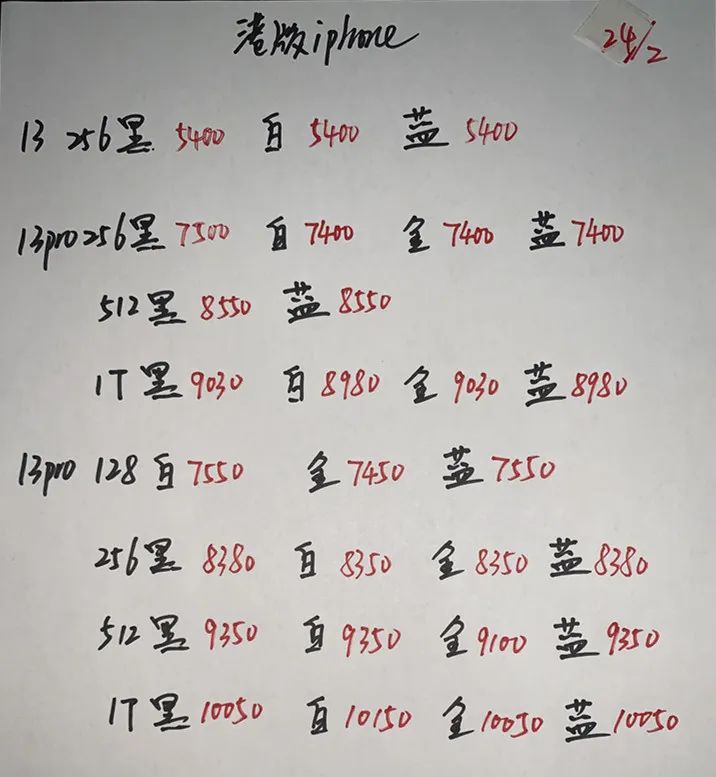 港版iphone 24/2
13 256黑 5400 白 5400 蓝 5400
13pro 256黑 7500 白 7400 金 7400 蓝 7400
512黑 8550 蓝 8550
1T黑 9030 白 8980 金 9030 蓝 8980
13pro 128白 7550 金 7450 蓝 7550
256黑 8380 白 8350 金 8350 蓝 8380
512黑 9350 白 9350 金 9100 蓝 9350
1T黑 10050 白 10150 金 10050 蓝 10050